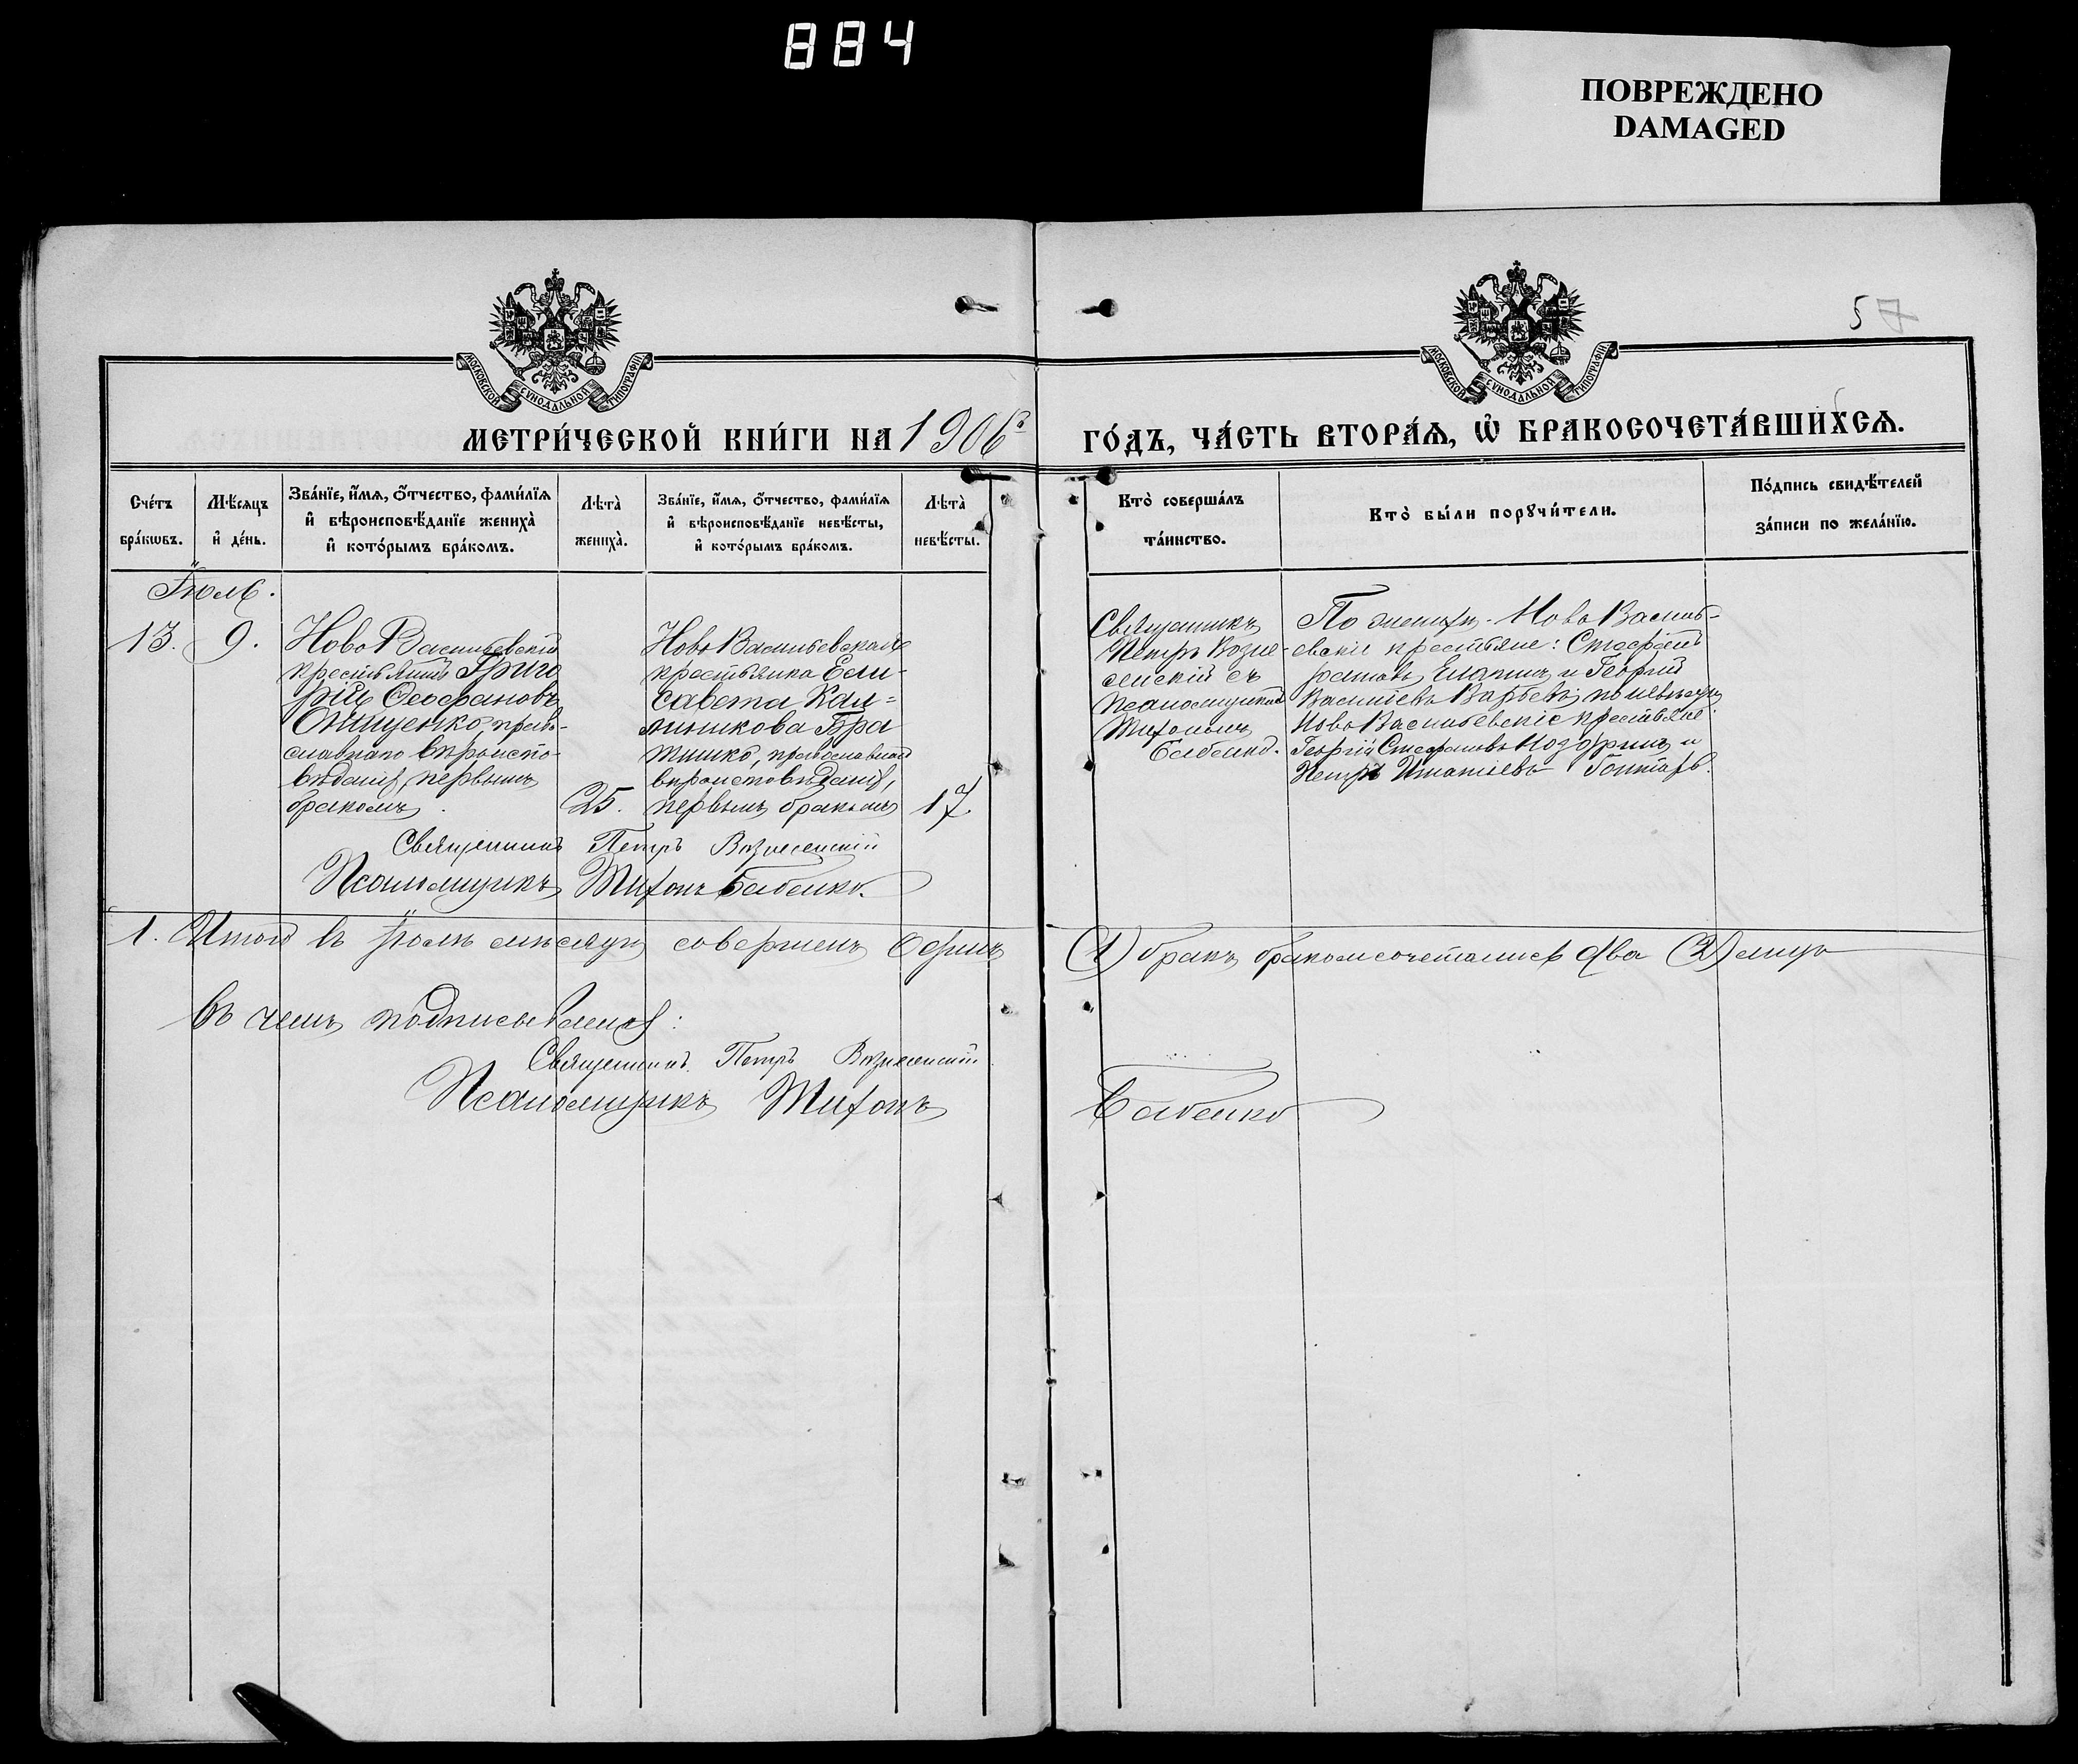 884
ПОВРЕЖДЕНО
DAMAGED
57
МОСКОВСКОЙ СѴНОДАЛЬНОЙ ТИПОГРАФІИ
МОСКОВСКОЙ СѴНОДАЛЬНОЙ ТИПОГРАФІИ
МЕТРИ́ЧЕСКОЙ КНИ́ГИ НА 1906й ГО́ДЪ, ЧА́СТЬ ВТОРА́Ѧ, Ѡ҆ БРАКОСОЧЕТА́ВШИХСѦ.
Сче́тъ
бра́кѡвъ.
Мѣ́сѧцъ
и҆ де́нь.
Зва́нїе, и҆́мѧ, ѻ҆́тчество, фами́лїѧ
и҆ вѣроисповѣ́данїе жениха̀
и҆ кото́рымъ бра́комъ.
Лѣта̀
жениха̀.
Зва́нїе, и҆́мѧ, ѻ҆́тчество, фами́лїѧ
и҆ вѣроисповѣ́данїе невѣ́сты,
и҆ кото́рымъ бра́комъ.
Лѣта̀
невѣ́сты.
Кто̀ соверша́лъ
та́инство.
Кто̀ бы́ли порꙋчи́тели.
По́дпись свидѣ́телей
за́писи по жела́нїю.
Іюль.
13.
9.
Ново Васильевскій
крестьянинъ Григо
рій Ѳеофановъ
Онищенко, право-
славнаго вѣроиспо-
вѣданія, первымъ
бракомъ.
25.
Ново Васильевская
крестьянка Ели-
савета
Бра
тишко, православнаго
вѣроисповѣданія,
первымъ бракомъ
17.
Священникъ
Петръ Возне-
сенскій съ
псаломщикомъ
Тихономъ
Бабенко.
По женихѣ - Ново Василь-
евскіе крестьяне:
и Георгій
Васильевъ по невѣстѣ
Ново Васильевскіе крестьяне
Георгій Стефановъ и
Петръ Игнатіевъ Гонтарь.
Священникъ Петръ Вознесенскій
Псаломщикъ Тихонъ Бабенко.
1. Итого въ Іюлѣ мѣсяцѣ совершенъ Одинъ (1) бракъ, бракомъ сочетались два (2) лица
въ чемъ подписываемся:
Священникъ Петръ Вознесенскій
Псаломщикъ Тихонъ Бабенко